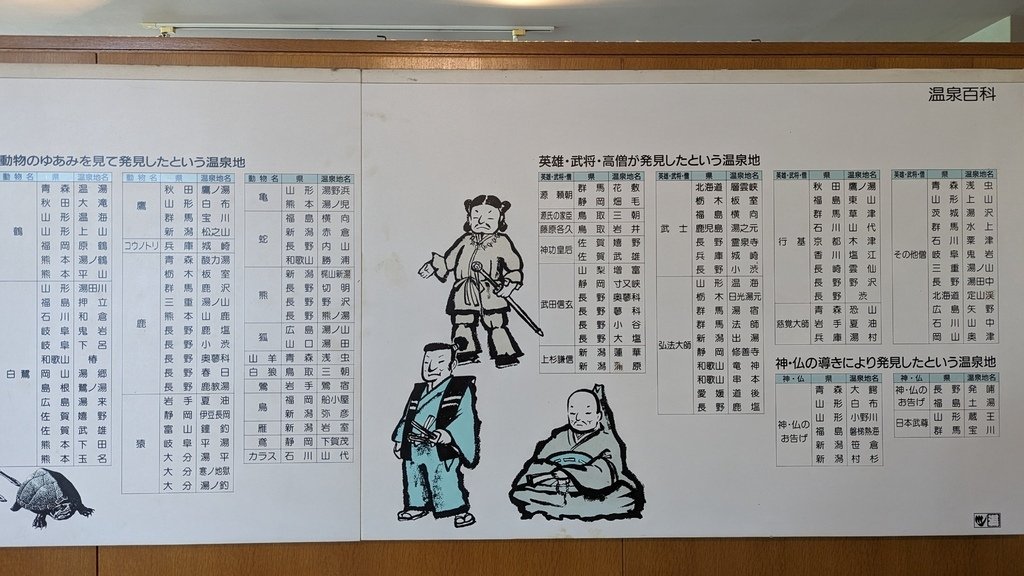 温泉百科
動物のゆあみを見て発見したという温泉地
動物名 県 温泉地名
鶴
青森 温湯
秋田 大滝
山形 温海
山形 上山
福岡 原鶴
熊本 湯ノ鶴
熊本 平山
白鷺
山形 湯田川
福島 押立
石川 和倉
岐阜 鬼岩
岐阜 下呂
和歌山 椿
岡山 湯郷
島根 鷺ノ湯
広島 湯来
佐賀 嬉野
佐賀 武雄
熊本 下田
熊本 玉名
動物名 県 温泉地名
鷹
秋田 鷹ノ湯
山形 白布
群馬 宝川
新潟 松之山
コウノトリ 兵庫 城崎
鹿
青森 酸力湯
栃木 板室
群馬 鹿沢
三重 湯ノ山
熊本 山鹿
長野 鹿塩
長野 小渋
長野 奥蓼科
長野 春日
長野 鹿教湯
猿
岩手 夏油
静岡 伊豆長岡
富山 鐘釣
岐阜 平湯
大分 湯平
大分 寒ノ地獄
大分 湯ノ釣
動物名 県 温泉地名
亀
山形 湯野浜
熊本 湯ノ児
蛇
福島 横向
新潟 赤倉
長野 内山
和歌山 勝浦
熊
新潟 栃尾又
長野 切明
長野 野沢
長野 熊ノ湯
狐
広島 湯ノ山
山口 湯田
山羊 青森 浅虫
白狼 鳥取 三朝
鶯 岩手 鶯宿
鳥
福岡 船小屋
新潟 弥彦
雁 新潟 岩室
鳶 静岡 下賀茂
カラス 石川 山代
英雄・武将・高僧が発見したという温泉地
英雄・武将・僧 県 温泉地名
源頼朝
群馬 花敷
静岡 畑毛
源氏の家臣 鳥取 三朝
藤原各久 鳥取 岩井
神功皇后
佐賀 嬉野
佐賀 武雄
武田信玄
山梨 増富
静岡 寸又峡
長野 奥蓼科
長野 蓼科
長野 小谷
長野 大塩
上杉謙信
新潟 蓮華
新潟 蒲原
英雄・武将・僧 県 温泉地名
武士
北海道 層雲峡
栃木 板室
福島 横向
鹿児島 湯之元
長野 霊泉寺
兵庫 城崎
長野 小渋
弘法大師
山形 温海
栃木 日光湯元
群馬 湯宿
群馬 法師
新潟 出湯
静岡 修善寺
和歌山 竜神
和歌山 串本
愛媛 道後
長野 鹿塩
英雄・武将・僧 県 温泉地名
行基
秋田 鷹ノ湯
福島 東山
群馬 草津
石川 山代
京都 木津
香川 塩江
長崎 雲仙
長野 野沢
長野 渋
慈覚大師
青森 恐山
岩手 夏油
兵庫 湯村
英雄・武将・僧 県 温泉地名
その他僧
青森 浅虫
山形 上山
茨城 湯沢
群馬 水上
石川 粟津
岐阜 鬼岩
三重 湯ノ山
長野 湯田中
北海道 定山渓
広島 矢野
石川 山中
岡山 奥津
神・仏の導きにより発見したという温泉地
神・仏 県 温泉地名
神・仏のお告げ
青森 大鰐
山形 白布
山形 小野川
福島 磐梯熱海
新潟 笹倉
新潟 村杉
神・仏 県 温泉地名
神・仏のお告げ
長野 発哺
福島 土湯
日本武尊
山形 蔵王
群馬 宝川